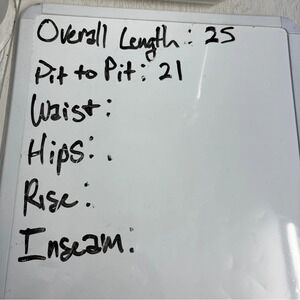 Overall Length: 25
Pit to Pit: 21
Waist:
Hips: .
Rise:
Inseam: